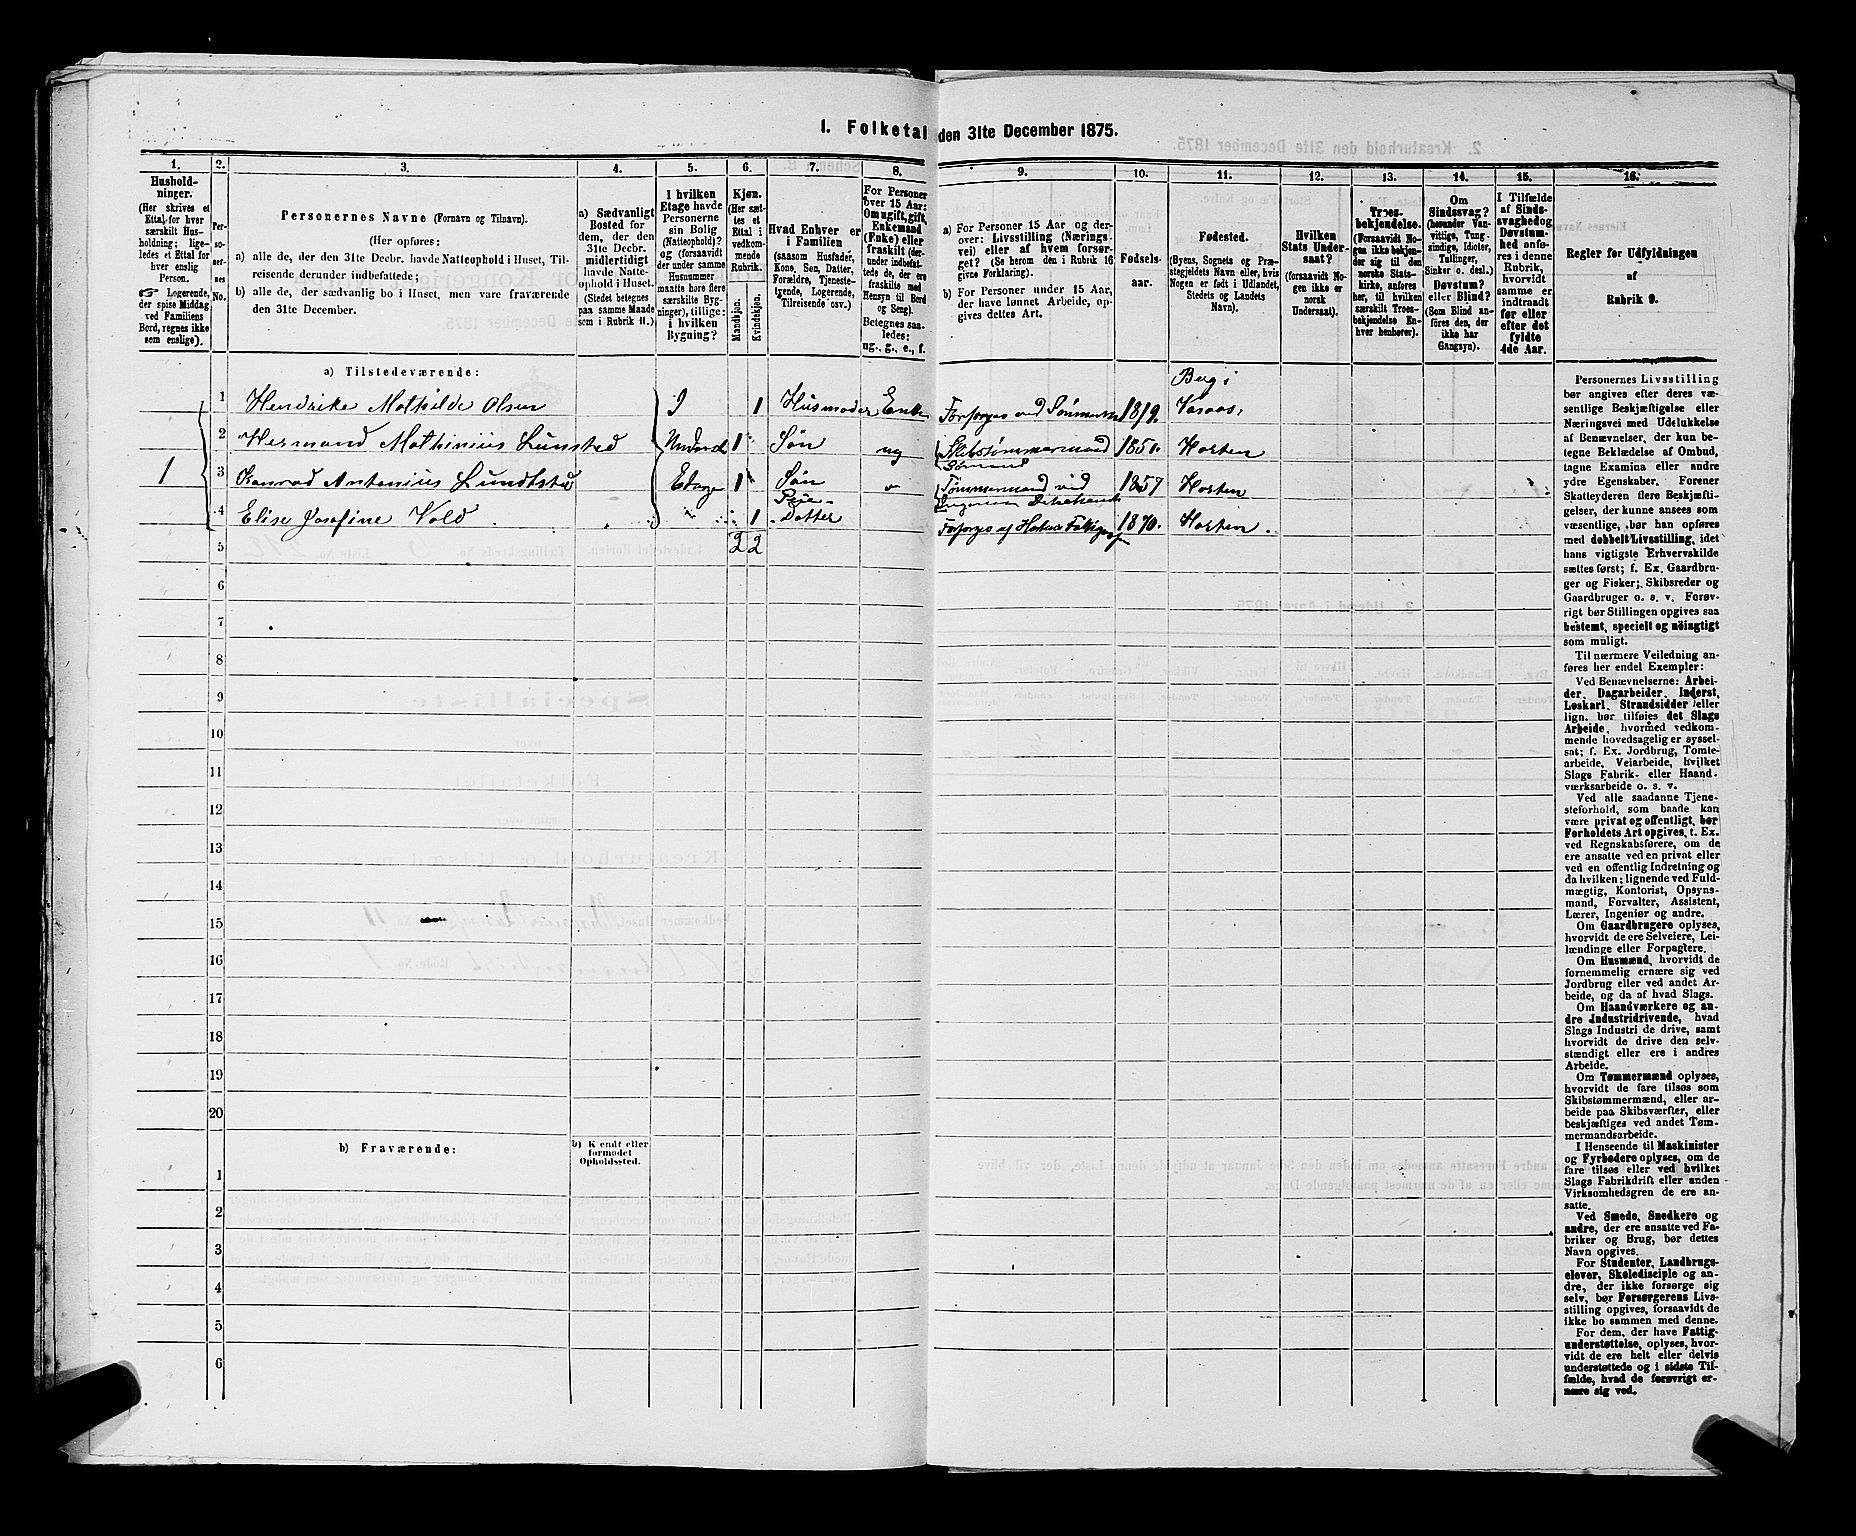 I. Folketal den 31te December 1875.
1. 2. 3. 4. 5. 6. 7. 8. 9. 10. 11. 12. 13. 14. 15. 16.
Hushold-
ninger.
(Her skrives et
Ettal for hver
særskilt Hus-
holdning; lige-
ledes et Ettal for
hver enslig
Person.
Logerende,
der spise Middag
ved Familiens
Bord, regnes ikke
som enslige).
Per-
so-
ner-
nes
No.
Personernes Navne (Fornavn og Tilnavn).
(Her opføres:
a) alle de, der den 31te Decbr. havde Natteophold i Huset, Til-
reisende derunder indbefattede;
b) alle de, der sædvanlig bo i Huset, men vare fraværende
den 31te December.
a) Sædvanligt
Bosted for
dem, der den
31te Decbr.
midlertidigt
havde Natte-
ophold i Huset.
(Stedet betegnes
paa samme Maade
som i Rubrik 11.)
I hvilken
Etage havde
Personerne
sin Bolig
(Natteophold)?
og (forsaavidt
der under samme
Husnummer
maatte høre flere
særskilte Byg-
ninger), tillige:
i hvilken
Bygning?
Kjøn.
(Her sæt-
tes et
Ettal i
vedkom-
mende
Rubrik.
Mandkjøn.
Kvindekjøn.
Hvad Enhver er
i Familien
(saasom Husfader,
Kone, Søn, Datter,
Forældre, Tjeneste-
tjengde, Logerende,
Tilreisende osv.)
For Personer
over 15 Aar:
Om ugift, gift,
Enkemand
(Enke) eller
fraskilt (der-
under indbefat-
tede de, der ere
fraskilte med
Hensyn til Bord
og Seng).
Betegnes saa-
ledes:
ug., g., e., f.
a) For Personer 15 Aar og der-
over: Livsstilling (Nærings-
vei) eller af hvem forsør-
get? (Se herom den i Rubrik 16
givne Forklaring).
b) For Personer under 15 Aar,
der have lønnet Arbeide, op-
gives dettes Art.
Fødsels-
aar.
Fødested.
(Byens, Sognets og Præ-
stegjeldets Navn eller, hvis
Nogen er født i Udlandet,
Stedets og Landets
Navn).
Hvilken
Stats Under-
saat?
(forsaavidt No-
gen ikke er
norsk
Undersaat).
Troes-
bekjendelse.
(Forsaavidt No-
gen ikke bekjen-
der sig til den
norske Stats-
kirke, anføres
her, til hvilken
særskilt Troes-
bekjendelse En-
hver henhører).
Om
Sindssvag?
(herunder Van-
vittige, Tung-
sindige, Idioter,
Tullinger,
Sinker o. desl.)
Døvstum?
eller Blind?
(Som Blind an-
føres den, der
ikke har
Gangsyn).
I Tilfælde
af Sinds-
svaghed og
Døvstum-
hed anfø-
res i denne
Rubrik,
hvorvidt
samme er
indtraadt
før eller
efter det
fyldte
4de Aar.
Regler for Udfyldningen
af
Rubrik 9.
a) Tilstedeværende:
Berg i
1 Hendrike Mathilde Olsen I 1 Husmoder Enke Forsørges ved Sønnerne 1819. Varaas,
2 Hermand Mathinius Lunsted Underst 1 Søn ug Skibstømmermand 1850. Horten
Sømand
1 3 Konrad Antonius Lundtsted Etage 1 Søn " Tømmermand ved 1857 Horten
Pleje-
4 Elise Josefine Vold " 1 Datter Forsørges af Hortens Fattigv 1870. Horten.
5 2 2
6
7
8
9
10
11
12
13
14
15
16
17
18
19
20
b) Fraværende:
b) Kendt eller
formodet
Opholdssted.
1
2
3
4
5
6
Personernes Livsstilling
bør angives efter deres væ-
sentlige Beskjæftigelse eller
Næringsvei med Udelukkelse
af Benævnelser, der kun be-
tegne Beklædelse af Ombud,
tagne Examina eller andre
ydre Egenskaber. Forener
Skatteyderen flere Beskjæfti-
gelser, der kunne ansees som
væsentlige, bør han opføres
med dobbelt Livsstilling, idet
hans vigtigste Erhvervskilde
sættes først; f. Ex. Gaardbru-
ger og Fisker; Skibsreder og
Gaardbruger o. s. v. Forøv-
rigt bør Stillingen opgives saa
bestemt, specielt og nøiagtigt
som muligt.
Til nærmere Veiledning an-
føres her endel Exempler:
Ved Benævnelserne: Arbei-
der, Dagarbeider, Inderst,
Løskarl, Strandsidder eller
lign. bør tilføies det Slags
Arbeide, hvormed vedkom-
mende hovedsagelig er syssel-
sat; f. Ex. Jordbrug, Tomte-
arbeide, Veiarbeide, hvilket
Slags Fabrik- eller Haand-
værksarbeide o. s. v.
Ved alle saadanne Tjene-
steforhold, som baade kan
være privat og offentligt, bør
Forholdets Art opgives, t. Ex.
ved Regnskabsførere, om de
ere ansatte ved en privat eller
ved en offentlig Indretning og
da hvilken; lignende ved Fuld-
mægtig, Kontorist, Opsyns-
mand, Forvalter, Assistent,
Lærer, Ingeniør og andre.
Om Gaardbrugere oplyses,
hvorvidt de ere Selveiere, Lei-
lændinge eller Forpagtere.
Om Husmænd, hvorvidt de
fornemmelig ernære sig ved
Jordbrug eller ved andet Ar-
beide, og da af hvad Slags.
Om Haandværkere og an-
dre Industridrivende, hvad
Slags Industri de drive, samt
hvorvidt de drive den selv-
stændigt eller ere i andres
Arbeide.
Om Tømmermænd oplyses,
hvorvidt de fare tilsøs som
Skibstømmermænd, eller ar-
beide paa Skibsværfter, eller
beskjæftiges ved andet Tøm-
mermandsarbeide.
I Henseende til Maskinister
og Fyrbødere oplyses, om de
fare tilsøs eller ved hvilket
Slags Fabrikdrift eller anden
Virksomhedsgren de ere an-
satte.
Ved Smede, Snedkere og
andre, der ere ansatte ved Fa-
briker og Brug, bør dettes
Navn opgives.
For Studenter, Landbrugs-
elever, Skoledisciple og an-
dre, der ikke forsørge sig
selv, bør Forsørgerens Livs-
stilling opgives, forsaavidt de
ikke bo sammen med denne.
For dem, der have Fattig-
understøttelse, oplyses, hvor-
vidt de ere helt eller delvis
understøttede og i sidste Til-
fælde, hvad de forøvrigt er-
nære sig ved.